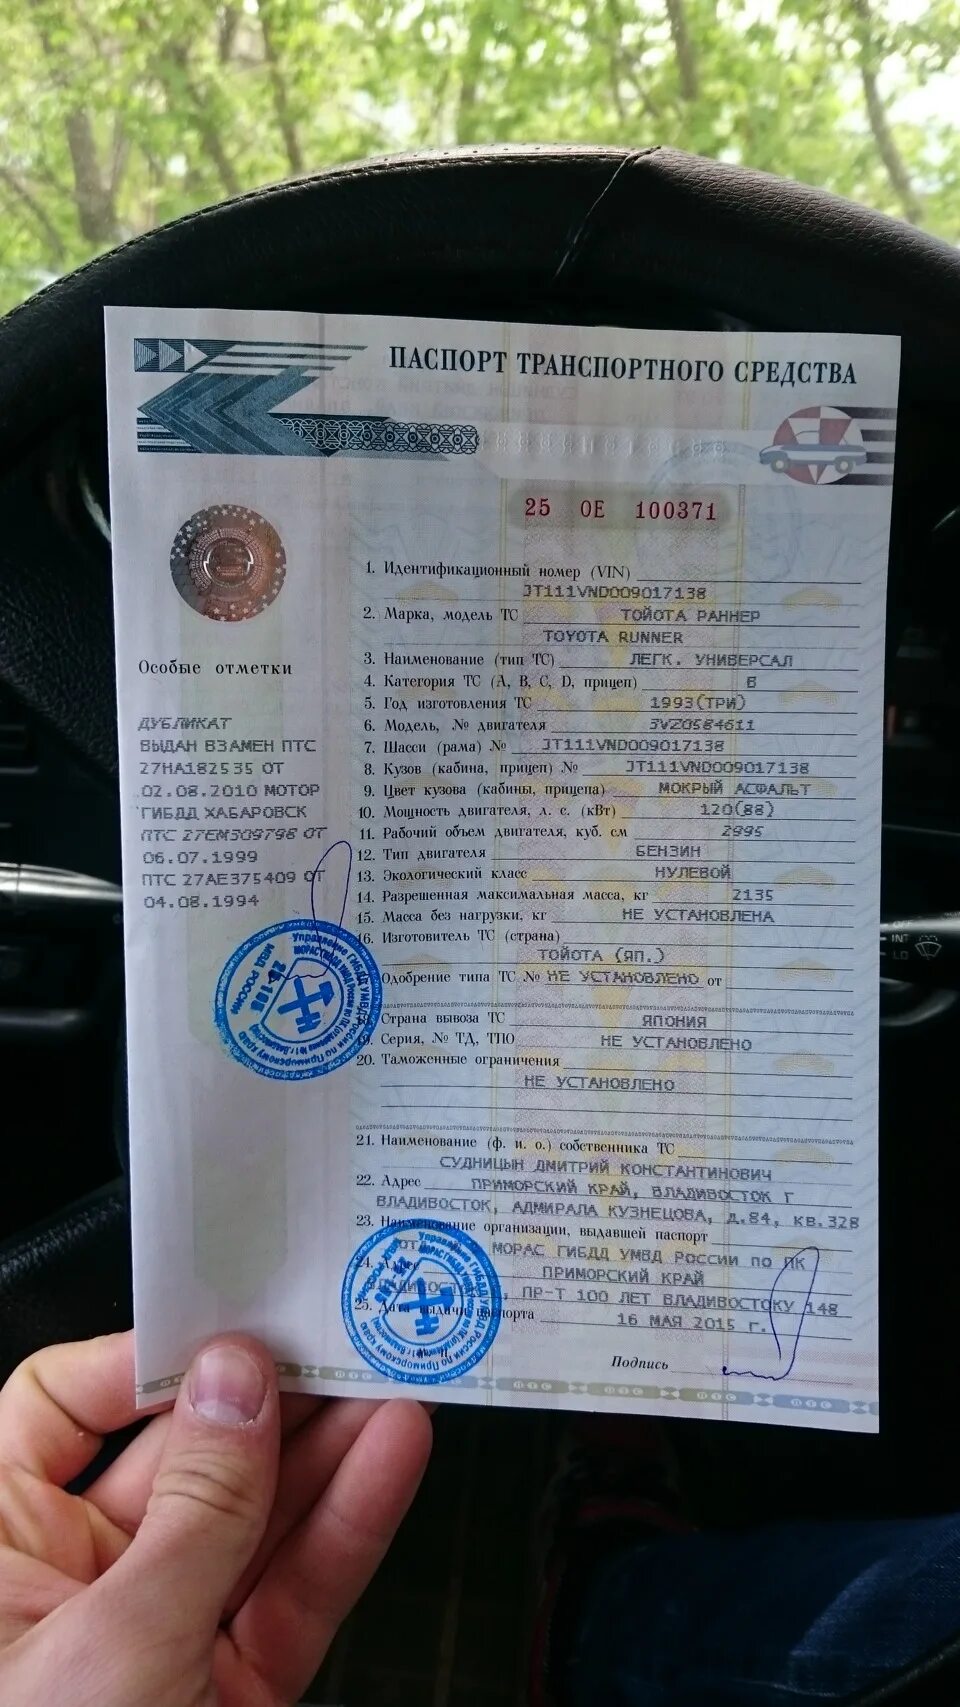 ПАСПОРТ ТРАНСПОРТНОГО СРЕДСТВА
25 ОЕ 100371
1. Идентификационный номер (VIN)
JT111VND009017138
2. Марка, модель ТС ТОЙОТА РАННЕР
TOYOTA RUNNER
3. Наименование (тип ТС) ЛЕГК. УНИВЕРСАЛ
4. Категория ТС (A, B, C, D, прицеп) В
5. Год изготовления ТС 1993(ТРИ)
6. Модель, № двигателя 3VZ0584611
7. Шасси (рама) № JT111VND009017138
8. Кузов (кабина, прицеп) № JT111VND009017138
9. Цвет кузова (кабины, прицепа) МОКРЫЙ АСФАЛЬТ
10. Мощность двигателя, л. с. (кВт) 120(88)
11. Рабочий объем двигателя, куб. см 2995
12. Тип двигателя БЕНЗИН
13. Экологический класс НУЛЕВОЙ
14. Разрешенная максимальная масса, кг 2135
15. Масса без нагрузки, кг НЕ УСТАНОВЛЕНА
16. Изготовитель ТС (страна)
ТОЙОТА (ЯП.)
Одобрение типа ТС № НЕ УСТАНОВЛЕНО от
Страна вывоза ТС ЯПОНИЯ
Серия, № ТД, ТПО НЕ УСТАНОВЛЕНО
20. Таможенные ограничения
НЕ УСТАНОВЛЕНО
21. Наименование (ф. и. о.) собственника ТС
СУДНИЦЫН ДМИТРИЙ КОНСТАНТИНОВИЧ
22. Адрес ПРИМОРСКИЙ КРАЙ, ВЛАДИВОСТОК Г
ВЛАДИВОСТОК, АДМИРАЛА КУЗНЕЦОВА, д.84, кв.328
23. Наименование организации, выдавшей паспорт
МОРАС ГИБДД УМВД РОССИИ ПО ПК
24. Адрес ПРИМОРСКИЙ КРАЙ
ПР-Т 100 ЛЕТ ВЛАДИВОСТОКУ 148
25. Дата выдачи паспорта 16 МАЯ 2015 г.
Подпись
Особые отметки
ДУБЛИКАТ
ВЫДАН ВЗАМЕН ПТС
27НА182535 ОТ
02.08.2010 МОТОР
ГИБДД ХАБАРОВСК
ПТС 27ЕМ309798 ОТ
06.07.1999
ПТС 27АЕ375409 ОТ
04.08.1994
INT
LO